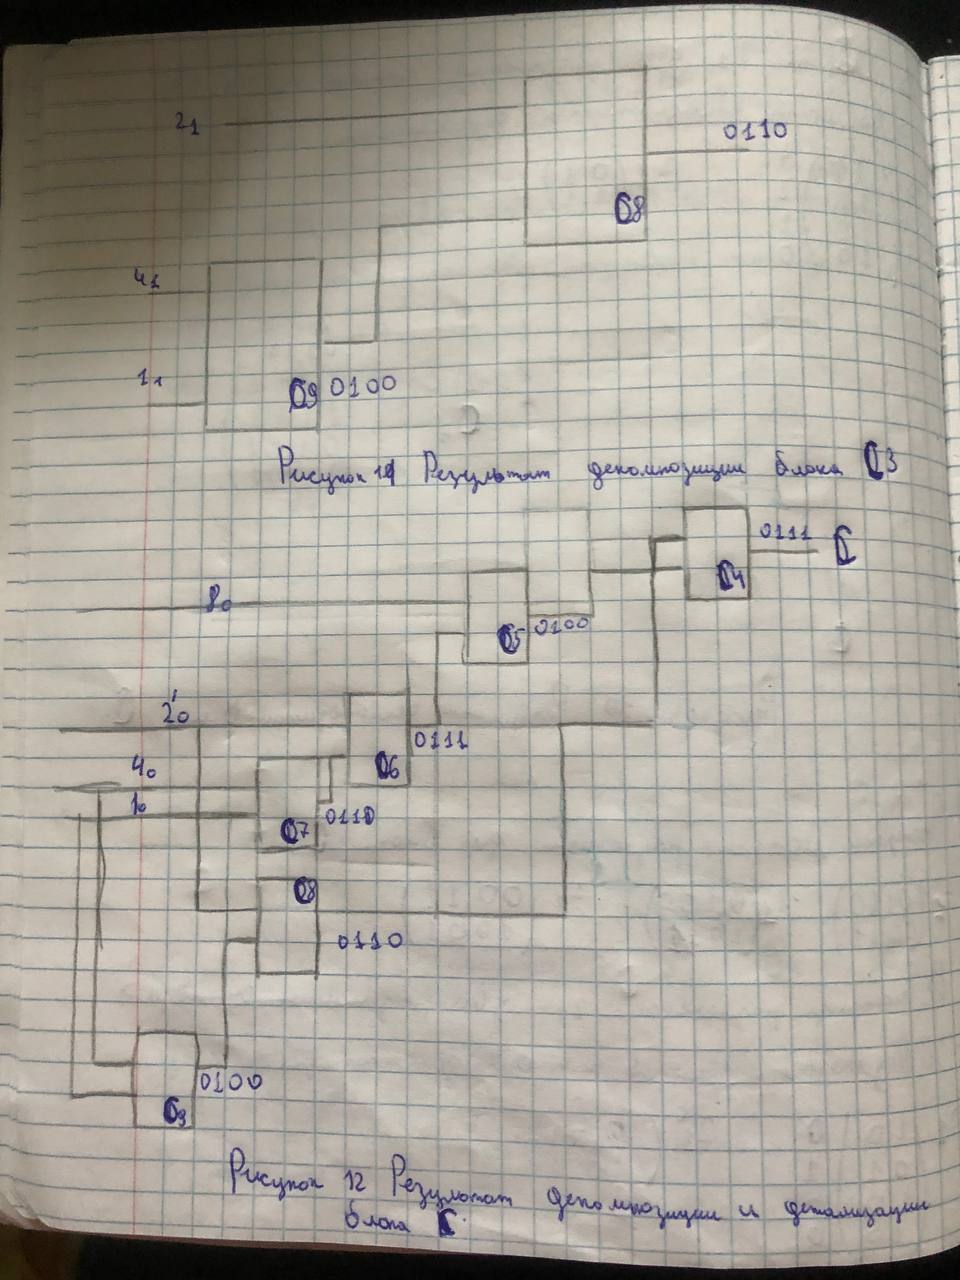 2₁
0110
C8
4₁
1₁
C9 0100
Рисунок 11 Результат декомпозиции блока C3
0111
C4
8₀
C5 0100
2'₀
0111
4₀
C6
1₀
0110
C7
C8
0110
0100
Рисунок 12 Результат декомпозиции и детализации
блока C